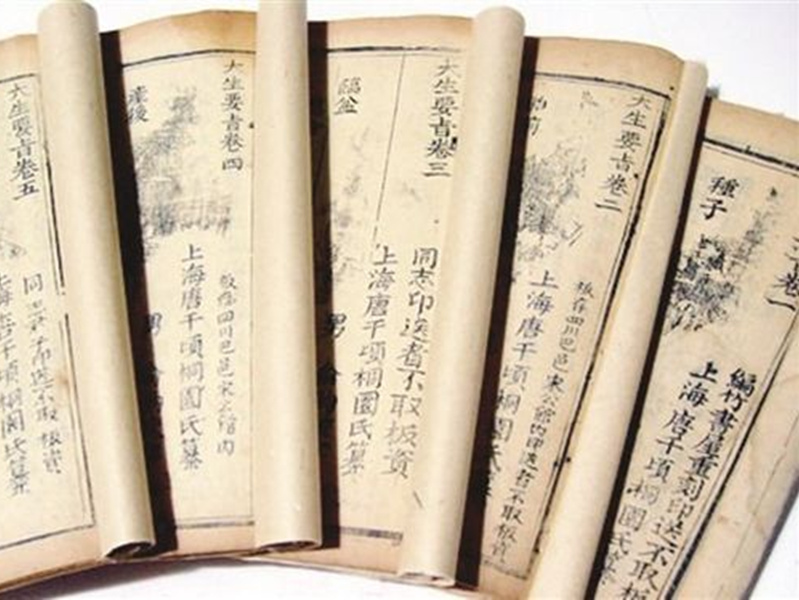 卷一
種子
編竹書屋重刻印送不取板
上海唐千頃桐園氏纂
大生要旨卷二
板存四川巴邑宋公館內印送者不取板資
上海唐千頃桐園氏
大生要旨卷三
臨盆
同志印送者不取板資
上海唐千頃桐園氏纂
男
大生要旨卷四
產後
板存四川巴邑宋公館內
上海唐千頃桐園氏纂
男
大生要旨卷五
印送不取板資
海唐千頃桐園氏纂